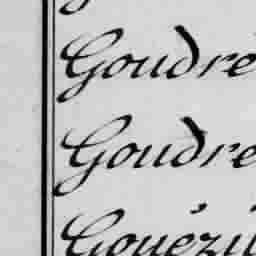 Goudre
Goudre
Gouézi